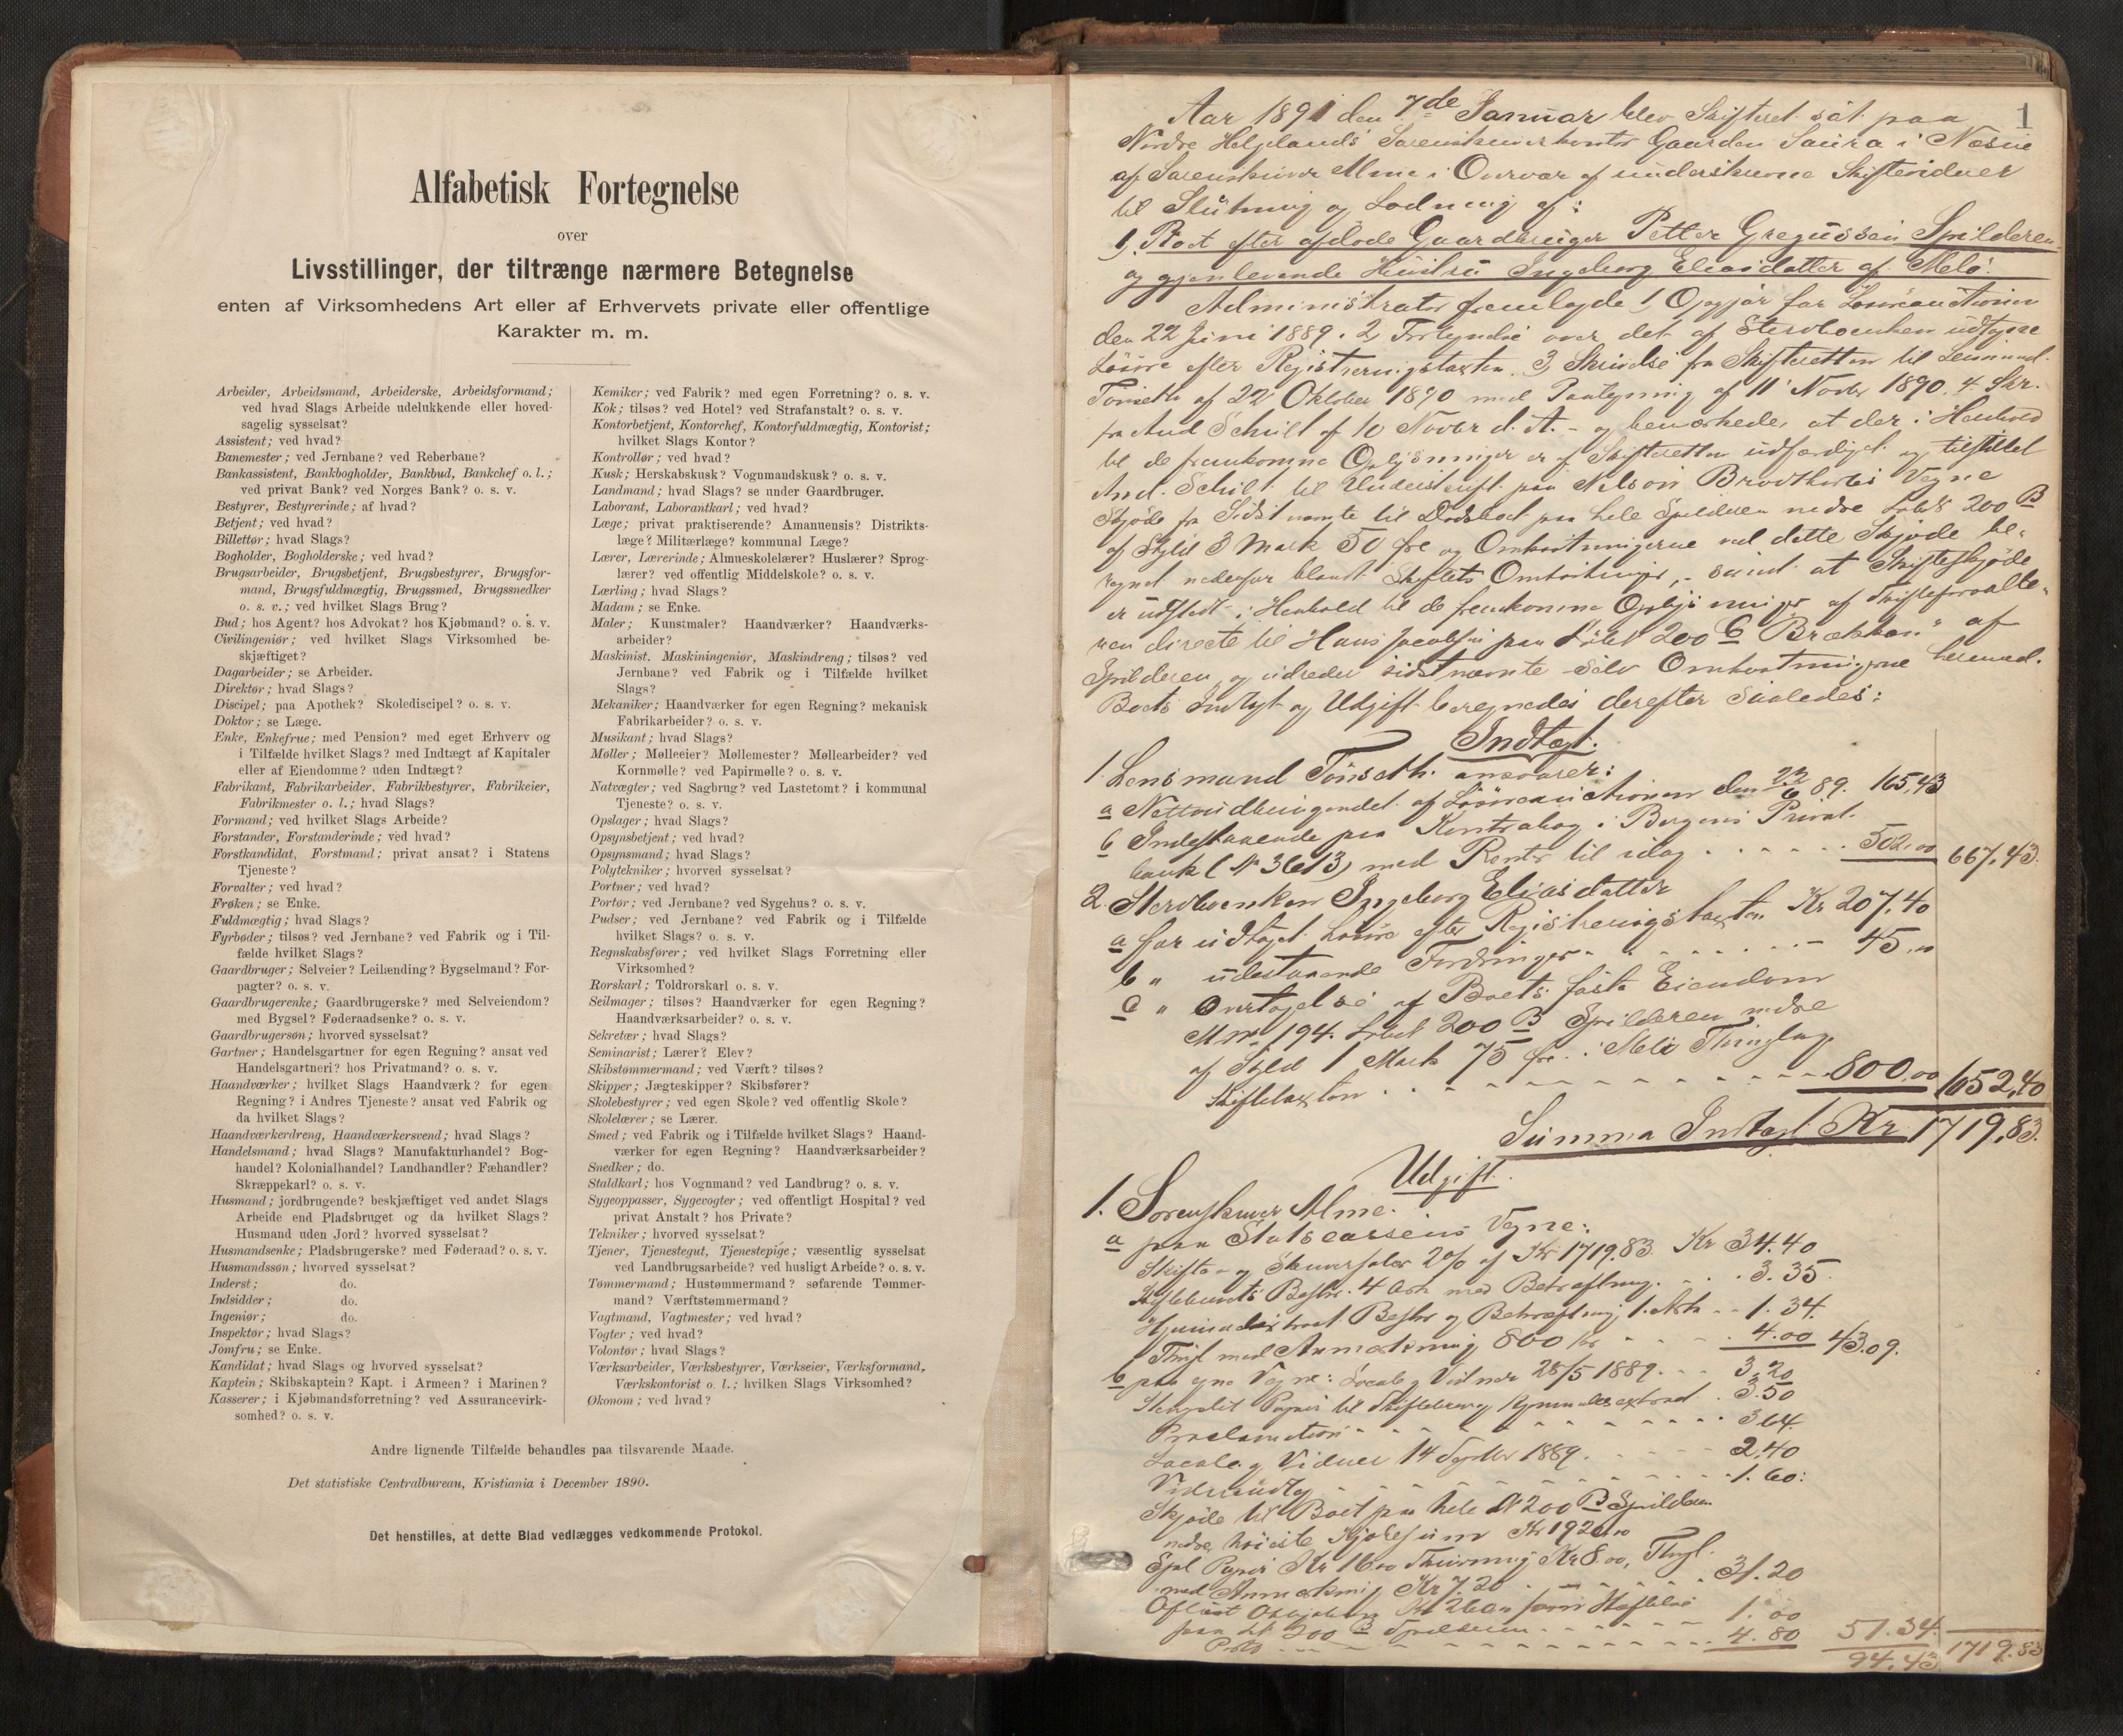 Alfabetisk Fortegnelse
over
Livsstillinger, der tiltrænge nærmere Betegnelse
enten af Virksomhedens Art eller af Erhvervets private eller offentlige
Karakter m. m.
Arbeider, Arbeidsmand, Arbeiderske, Arbeidsformand;
ved hvad Slags Arbeide udelukkende eller hoved-
sagelig sysselsat?
Assistent; ved hvad?
Banemester; ved Jernbane? ved Reberbane?
Bankassistent, Bankbogholder, Bankbud, Bankchef o. l.;
ved privat Bank? ved Norges Bank? o. s. v.
Bestyrer, Bestyrerinde; af hvad?
Betjent; ved hvad?
Billettør; hvad Slags?
Bogholder, Bogholderske; ved hvad?
Brugsarbeider, Brugsbetjent, Brugsbestyrer, Brugsfor-
mand, Brugsfuldmægtig, Brugssmed, Brugssnedker
o. s. v.; ved hvilket Slags Brug?
Bud; hos Agent? hos Advokat? hos Kjøbmand? o. s. v.
Civilingeniør; ved hvilket Slags Virksomhed be-
skjæftiget?
Dagarbeider; se Arbeider.
Direktør; hvad Slags?
Discipel; paa Apothek? Skolediscipel? o. s. v.
Doktor; se Læge.
Enke, Enkefrue; med Pension? med eget Erhverv og
i Tilfælde hvilket Slags? med Indtægt af Kapitaler
eller af Eiendomme? uden Indtægt?
Fabrikant, Fabrikarbeider, Fabrikbestyrer, Fabrikeier,
Fabrikmester o. l.; hvad Slags?
Formand; ved hvilket Slags Arbeide?
Forstander, Forstanderinde; ved hvad?
Forstkandidat, Forstmand; privat ansat? i Statens
Tjeneste?
Forvalter; ved hvad?
Frøken; se Enke.
Fuldmægtig; hvad Slags?
Fyrbøder; tilsøs? ved Jernbane? ved Fabrik og i Til-
fælde hvilket Slags?
Gaardbruger; Selveier? Leilænding? Bygselmand? For-
pagter? o. s. v.
Gaardbrugerenke; Gaardbrugerske? med Selveiendom?
med Bygsel? Føderaadsenke? o. s. v.
Gaardbrugersøn; hvorved sysselsat?
Gartner; Handelsgartner for egen Regning? ansat ved
Handelsgartneri? hos Privatmand? o. s. v.
Haandværker; hvilket Slags Haandværk? for egen
Regning? i Andres Tjeneste? ansat ved Fabrik og
da hvilket Slags?
Haandværkerdreng, Haandværkersvend; hvad Slags?
Handelsmand; hvad Slags? Manufakturhandel? Bog-
handel? Kolonialhandel? Landhandler? Fæhandler?
Skræppekarl? o. s. v.
Husmand; jordbrugende? beskjæftiget ved andet Slags
Arbeide end Pladsbruget og da hvilket Slags?
Husmand uden Jord? hvorved sysselsat?
Husmandsenke; Pladsbrugerske? med Føderaad? o. s. v.
Husmandssøn; hvorved sysselsat?
Inderst; do.
Indsidder; do.
Ingeniør; do.
Inspektør; hvad Slags?
Jomfru; se Enke.
Kandidat; hvad Slags og hvorved sysselsat?
Kaptein; Skibskaptein? Kapt. i Armeen? i Marinen?
Kasserer; i Kjøbmandsforretning? ved Assurancevirk-
somhed? o. s. v.
Kemiker; ved Fabrik? med egen Forretning? o. s. v.
Kok; tilsøs? ved Hotel? ved Strafanstalt? o. s. v.
Kontorbetjent, Kontorchef, Kontorfuldmægtig, Kontorist;
hvilket Slags Kontor?
Kontrollør; ved hvad?
Kusk; Herskabskusk? Vognmandskusk? o. s. v.
Landmand; hvad Slags? se under Gaardbruger.
Laborant, Laborantkarl; ved hvad?
Læge; privat praktiserende? Amanuensis? Distrikts-
læge? Militærlæge? kommunal Læge?
Lærer, Lærerinde; Almueskolelærer? Huslærer? Sprog-
lærer? ved offentlig Middelskole? o. s. v.
Lærling; hvad Slags?
Madam; se Enke.
Maler; Kunstmaler? Haandværker? Haandværks-
arbeider?
Maskinist, Maskiningeniør, Maskindreng; tilsøs? ved
Jernbane? ved Fabrik og i Tilfælde hvilket
Slags?
Mekaniker; Haandværker for egen Regning? mekanisk
Fabrikarbeider? o. s. v.
Musikant; hvad Slags?
Møller; Mølleeier? Møllemester? Møllearbeider? ved
Kornmølle? ved Papirmølle? o. s. v.
Natvægter; ved Sagbrug? ved Lastetomt? i kommunal
Tjeneste? o. s. v.
Opslager; hvad Slags?
Opsynsbetjent; ved hvad?
Opsynsmand; hvad Slags?
Polytekniker; hvorved sysselsat?
Portner; ved hvad?
Portør; ved Jernbane? ved Sygehus? o. s. v.
Pudser; ved Jernbane? ved Fabrik og i Tilfælde
hvilket Slags? o. s. v.
Regnskabsfører; ved hvilket Slags Forretning eller
Virksomhed?
Rorskarl; Toldrorskarl o. s. v.
Seilmager; tilsøs? Haandværker for egen Regning?
Haandværksarbeider? o. s. v.
Sekretær; hvad Slags?
Seminarist; Lærer? Elev?
Skibstømmermand; ved Værft? tilsøs?
Skipper; Jægteskipper? Skibsfører?
Skolebestyrer; ved egen Skole? ved offentlig Skole?
Skolelærer; se Lærer.
Smed; ved Fabrik og i Tilfælde hvilket Slags? Haand-
værker for egen Regning? Haandværksarbeider?
Snedker; do.
Staldkarl; hos Vognmand? ved Landbrug? o. s. v.
Sygeoppasser, Sygevogter; ved offentligt Hospital? ved
privat Anstalt? hos Private?
Tekniker; hvorved sysselsat?
Tjener, Tjenestegut, Tjenestepige; væsentlig sysselsat
ved Landbrugsarbeide? ved husligt Arbeide? o. s. v.
Tømmermand; Hustømmermand? søfarende Tømmer-
mand? Værftstømmermand?
Vagtmand, Vagtmester; ved hvad?
Vogter; ved hvad?
Volontør; hvad Slags?
Værksarbeider, Værksbestyrer, Værkseier, Værksformand,
Værkskontorist o. l.; hvilken Slags Virksomhed?
Økonom; ved hvad?
Andre lignende Tilfælde behandles paa tilsvarende Maade.
Det statistiske Centralbureau, Kristiania i December 1890.
Det henstilles, at dette Blad vedlægges vedkommende Protokol.
1
Aar 1891 den 7de Januar blev Skifteret sat paa
Nordre Helgelands Sorenskriverkontor Gaarden Saura i Næsne
af Sorenskriver Alme i Overvær af underskrevne Skiftevidner
til Slutning og Lodning af:
1, Boet efter afdøde Gaardbruger Petter Gregussen Spilderen
og gjenlevende Hustru Ingeborg Eliasdatter af Melø.
Administrator fremlagde 1, Opgjør for Løsøreauctionen
den 22 Juni 1889. 2, over det af Sterboenken udtagne
Løsøre efter Registreringstaxten. 3, Skrivelse fra Skifteretten til Lensmand
Tönseth af 22 Oktober 1890 med Paategning af 11 Novbr 1890. 4. Skr.
fra And Schult af 10 Novbr d. A. - og bemærkede, at der i Henhold
til de fremkomne Oplysninger er af Skifteretten udfærdiget og tilstillet
And. Schult til Underskrift paa Nelson Vegne
Skjøde fra Sidstnævnte til Dødsboet paa hele Spilderen nedre Løbe No 200 B
af Skyld 3 Mark 50 øre og Omkostningerne ved dette Skjøde be-
regnet nedenfor blandt Skiftets Omkostninger, samt at Skifteskjøde
er udstedt i Henhold til de fremkomne Oplysninger af Skifteforvalte-
ren directe til Hans Jacobsen paa Løbe 200 C "Brækken" af
Spilderen, og udreder sidstnævnte selv Omkostningerne herved.
Boets Indtægt og Udgift beregnedes derefter saaledes:
Indtægt.
1. Lensmand Tönseth ansvarer:
a Nettoudbringendet af Løsøreauctionen den 22/6 89. 165,43
b Indestaaende paa Kontrabog i Bergens Privat-
bank (No 3613) med Renter til idag 502,00 667,43
2. Sterboenken Ingeborg Eliasdatter
a for udtaget Løsøre efter Registreringstaxten Kr 207,40
b " udestaaende Fordringer 45,00
c " Overtagelse af Boets faste Eiendom
M No 194. Løbe 200 B Spilderen nedre
af Skyld 1 Mark 75 øre i Melø Thinglag
Skiftetaxten 800,00 1052,40
Summa Indtægt Kr 1719,83.
Udgift.
1. Sorenskriver Alme.
a paa Statscassens Vegne:
Skifte- og Skriversalær 2% af Kr 1719.83 Kr 34.40
Skiftebrevets Beskr. 4 Ark med Bekræftning. 3.35
Beskr og Bekræftning 1. Ark 1.34.
Thingl med Anmerkning 800 kr 4.00 43.09.
b paa egne Vegne: Locale og Vidner 28/5 1889. 3,20
Stemplet Papir til Skiftebrev og 3.50
Proclamation 3.64.
Locale og Vidner 14 Septbr 1889. 2,40
1.60:
Skjøde til Boet paa hele No 200 B Spilderen
nedre høieste Kjøbesum Kr 1920,00
Spl Papir Kr 16.00 Skrivning Kr 8.00, Thgl.
med Anmerkning Kr 7.20 31.20
1.00
paa No 200 B Spilderen
Porto 4.80 51.34.
94.43 1719.83